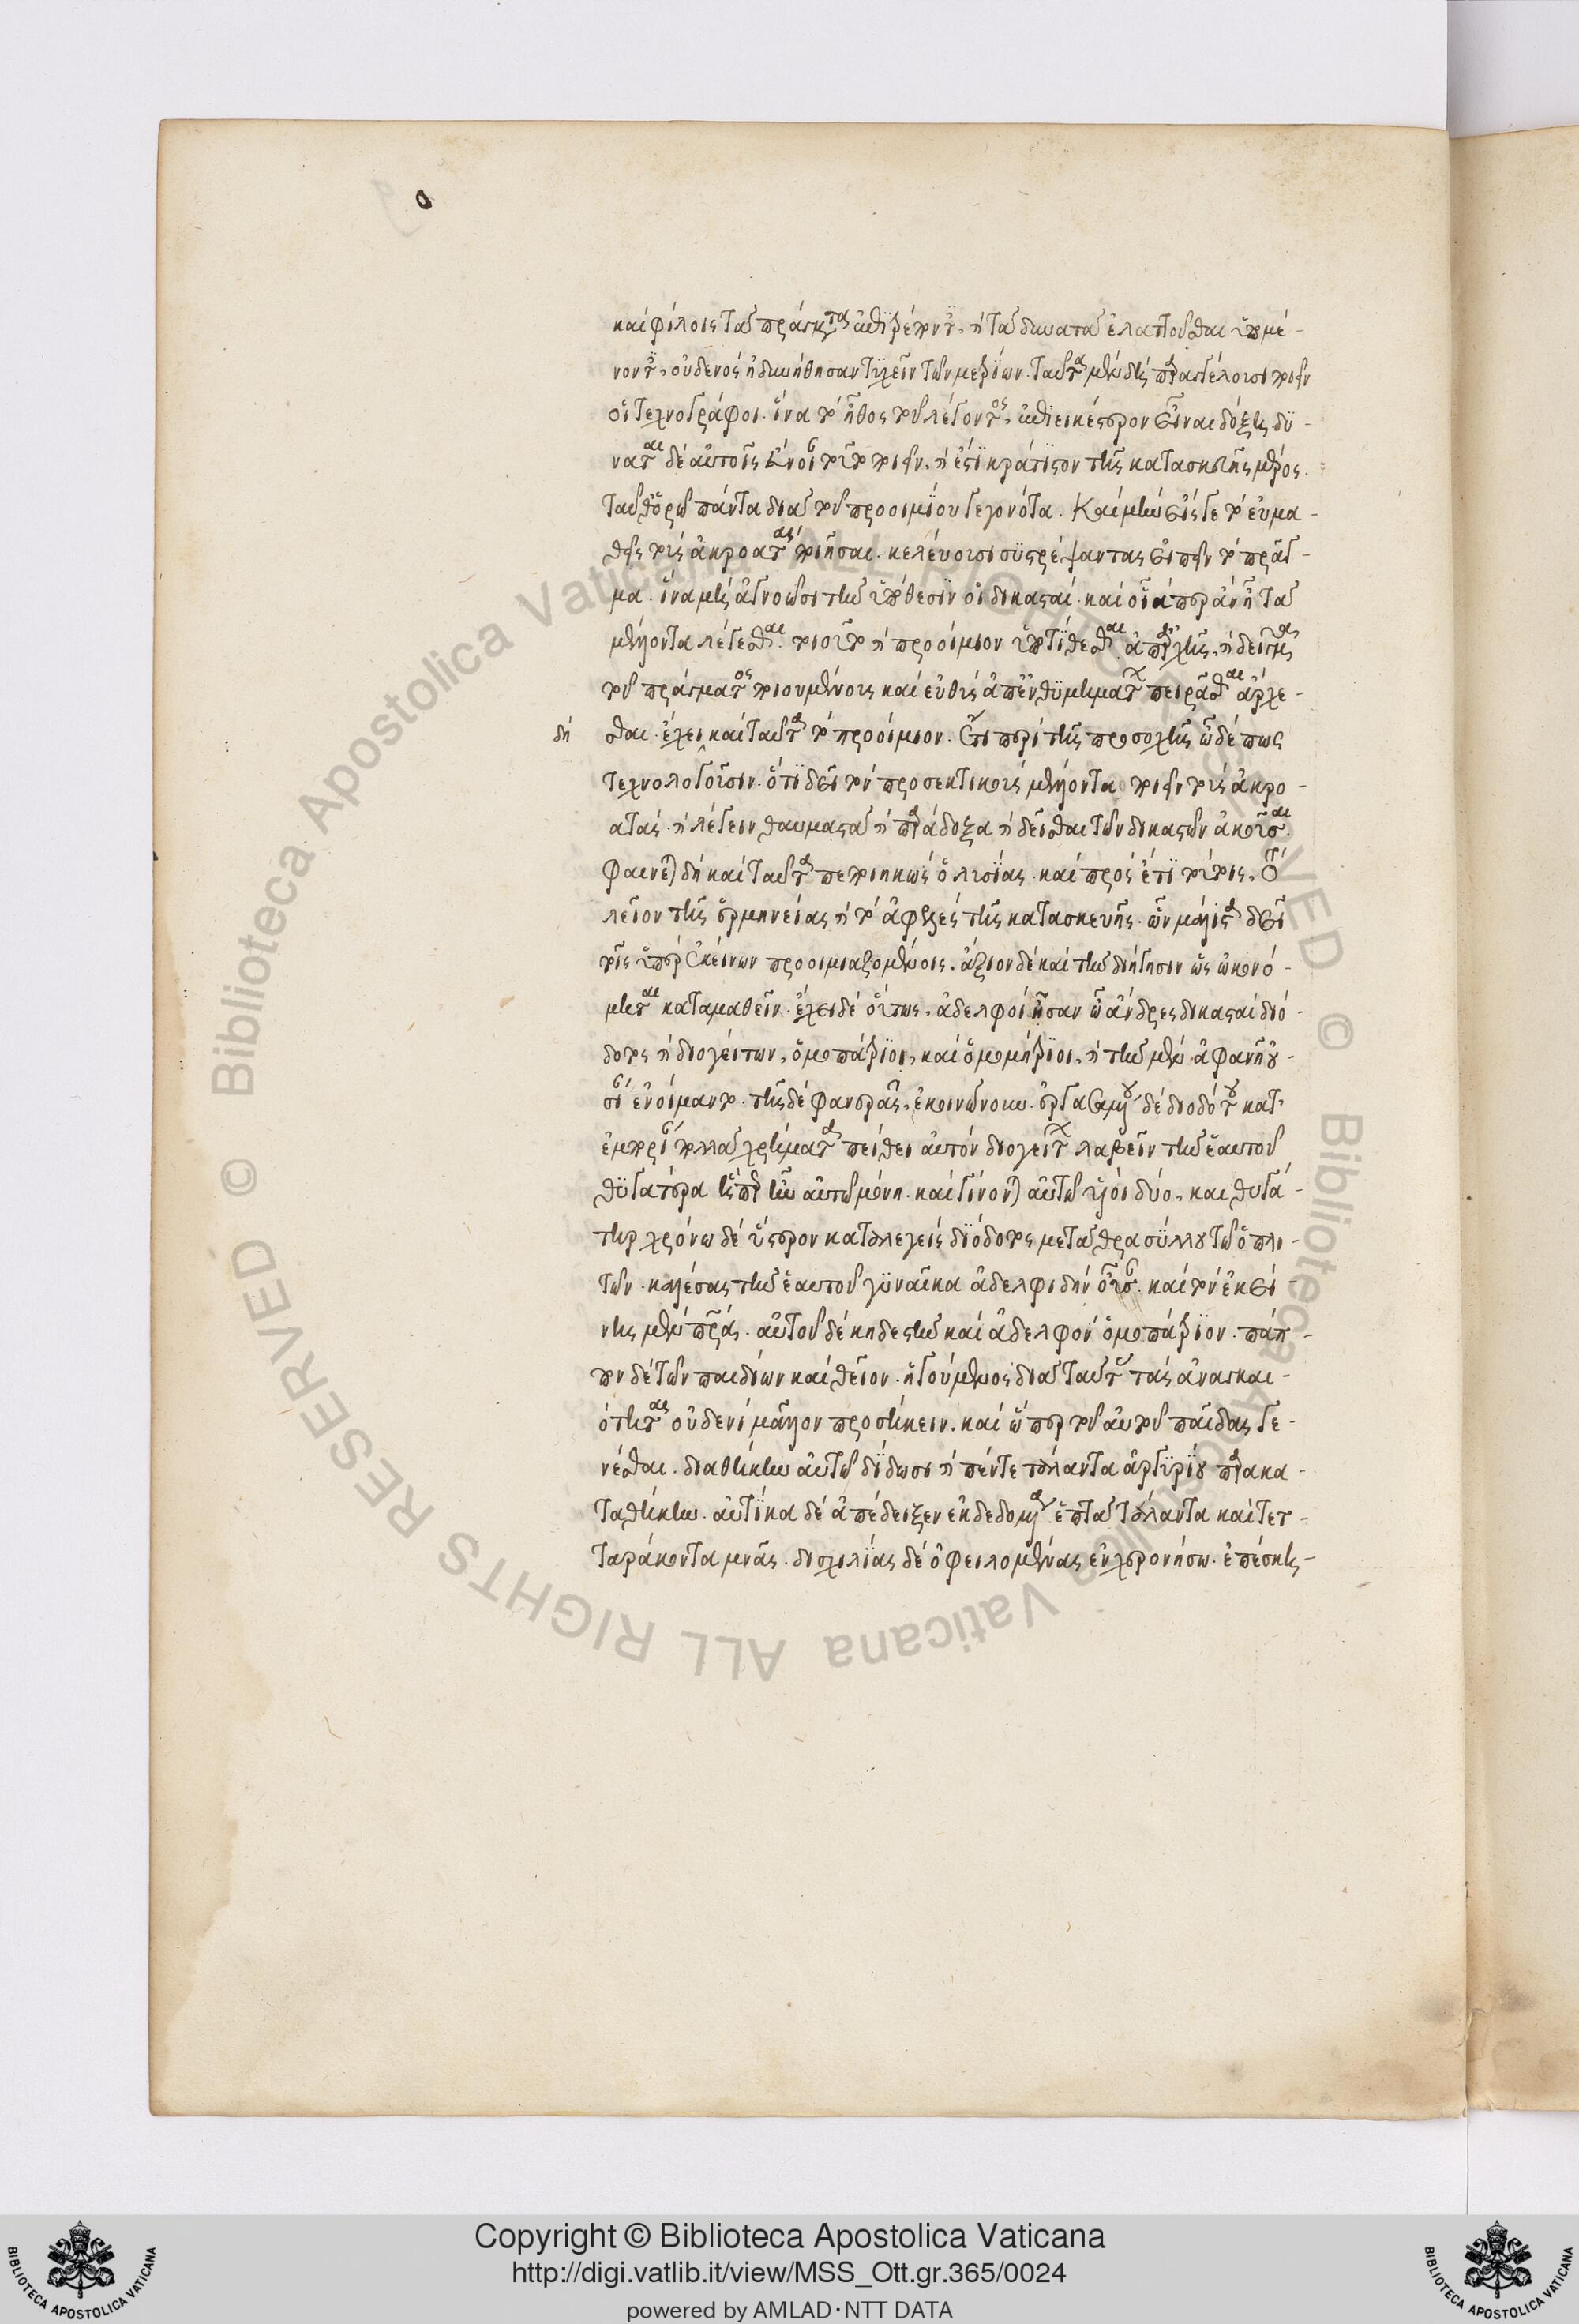 καὶ φίλοις τὰ πράγματα ἐπιτρέποντες, καὶ τὰ δίκαια τὰ ἐλαττοῦσθαι ὑπομέ-
νοντες, οὐδενὸς ἠδυνήθησαν τυχεῖν τῶν μετρίων. ταῦτα μὲν δὴ παραγγέλουσι ποιεῖν
οἱ τεχνογράφοι. ἵνα τὸ ἦθος τοῦ λέγοντος, ἐπιεικέστερον εἶναι δόξῃ. δύ-
ναται δὲ αὐτοῖς εὔνοιαν τοῦτο ποιεῖν. καὶ ἔστι κράτιστον τῆς κατασκευῆς μέρος.
ταῦθ' ὁρῶ πάντα διὰ τοῦ προοιμίου γεγονότα. Καὶ μὴν εἴς γε τὸ εὐμα-
θεῖς τοὺς ἀκροατὰς ποιῆσαι. κελεύουσι συστρέψαντας εἰπεῖν τὸ πρᾶγ-
μα. ἵνα μὴ ἀγνοῶσι τὴν ὑπόθεσιν οἱ δικασταί. καὶ οἷά περ ἂν ᾖ τὰ
μέλλοντα λέγεσθαι. τοιοῦτο καὶ προοίμιον ὑποτίθεσθαι ἀπ' ἀρχῆς. καὶ δεῖγμα
τοῦ πράγματος ποιουμένοις καὶ εὐθὺς ἀπ' ἐνθυμημάτων πειρᾶσθαι ἄρχε-
δὴ σθαι. ἔχει καὶ ταῦτα τὸ προοίμιον. ἔτι περὶ τῆς προσοχῆς ὧδέ πως
τεχνολογοῦσιν. ὅτι δεῖ τὸν προσεκτικοὺς μέλλοντα ποιεῖν τοὺς ἀκρο-
ατάς. καὶ λέγειν θαυμαστὰ καὶ παράδοξα καὶ δεῖσθαι τῶν δικαστῶν ἀκοῦσαι.
φαίνεται δὴ καὶ ταῦτα πεποιηκὼς ὁ λυσίας. καὶ πρὸς ἔτι τούτοις, τὸ
λεῖον τῆς ἑρμηνείας καὶ τὸ ἀφελὲς τῆς κατασκευῆς. ὧν μάλιστα δεῖ
τοῖς ὑπὲρ ἐκείνων προοιμιαζομένοις. ἄξιον δὲ καὶ τὴν διήγησιν ὡς ᾠκονό-
μηται καταμαθεῖν. ἔχει δὲ οὕτως. ἀδελφοὶ ἦσαν ὦ ἄνδρες δικασταὶ διό-
δοτος καὶ διογείτων, ὁμοπάτριοι, καὶ ὁμομήτριοι, καὶ τὴν μὲν ἀφανῆ οὐ-
σίαν ἐνείμαντο. τῆς δὲ φανερᾶς, ἐκοινώνουν. ἐργασαμένου δὲ διοδότου κατ'
ἐμπορίαν πολλὰ χρήματα πείθει αὐτὸν διογείτων λαβεῖν τὴν ἑαυτοῦ
θυγατέρα ἥπερ ἦν αὐτῷ μόνη. καὶ γίνονται αὐτῷ υἱοὶ δύο, καὶ θυγά-
τηρ χρόνω δὲ ὕστερον καταλεγεὶς διόδοτος μετὰ θρασύλλου τῶν ὁπλι-
τῶν. καλέσας τὴν ἑαυτοῦ γυναῖκα ἀδελφιδὴν οὖσαν. καὶ τὸν ἐκεί-
νης μὲν πατέρα. αὐτοῦ δὲ κηδεστὴν καὶ ἀδελφὸν ὁμοπάτριον. πάπ-
πον δὲ τῶν παιδίων καὶ θεῖον. ἡγούμενος διὰ ταύτας τὰς ἀναγκαι-
ότητας οὐδενὶ μᾶλλον προσήκειν. καὶ ὥσπερ τοῦ αὐτοῦ παῖδας γε-
νέσθαι. διαθήκην αὐτῷ δίδωσι καὶ πέντε τάλαντα ἀργυρίου παρακα-
ταθήκην. αὐτίκα δὲ ἀπέδειξεν ἐκδεδομένα ἑπτὰ τάλαντα καὶ τετ-
ταράκοντα μνᾶς. δισχιλίας δὲ ὀφειλομένας ἐν χερονήσω. ἐπέσκη-